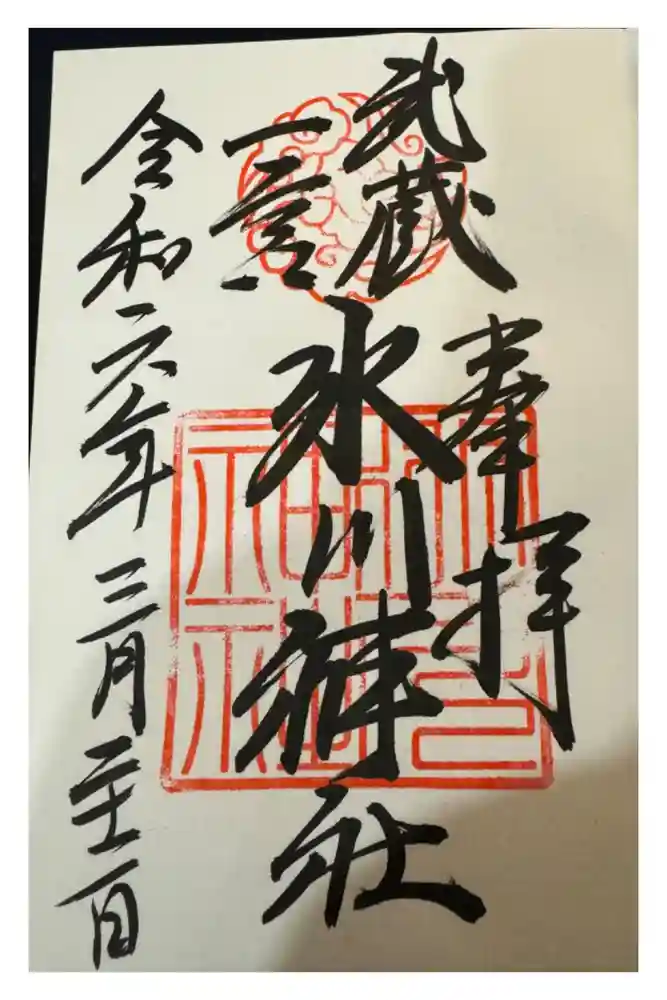 奉拝
武蔵
一宮
氷川神社
令和六年三月二十二日